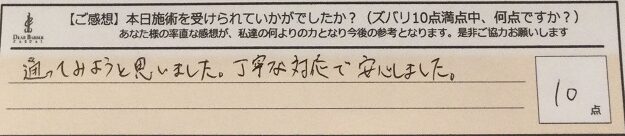 【ご感想】本日施術を受けられていかがでしたか？（ズバリ10点満点中、何点ですか？）
あなた様の率直な感想が、私達の何よりの力となり今後の参考となります。是非ご協力お願いします
DEAR BARBER
通ってみようと思いました。丁寧な対応で安心しました。
10
点